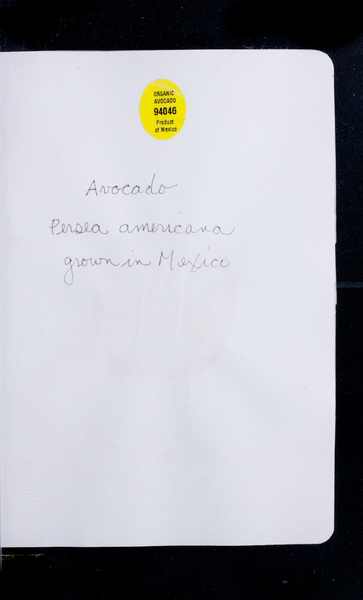 ORGANIC
AVOCADO
94046
Product
of Mexico
Avocado
Persea americana
grown in Mexico